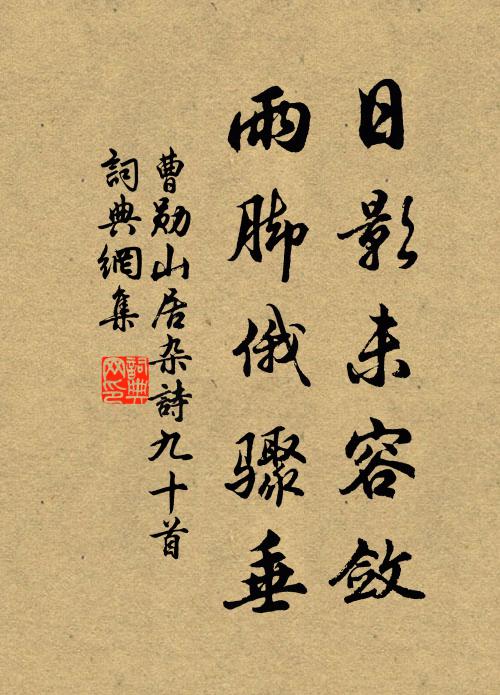 日影未容斂
雨脚俄骤垂
曹勋山居杂詩九十首
詞典網集
詞典网印